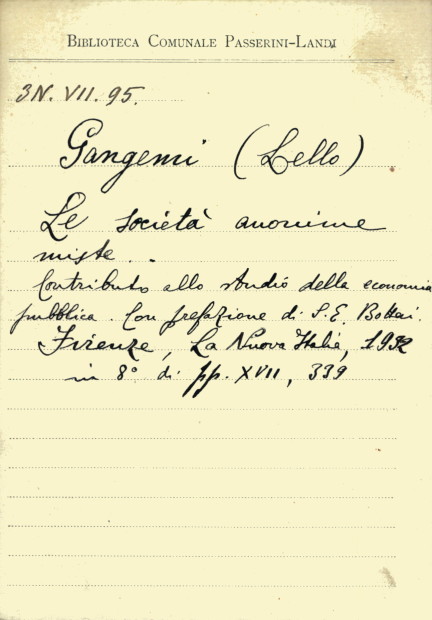 BIBLIOTECA COMUNALE PASSERINI-LANDI
3N. VII. 95.
Gangemi (Lello)
Le società anonime
miste..
Contributo allo studio della economia
pubblica. Con prefazione di S. E. Bottai.
Firenze, La Nuova Italia, 1932
in 8° di pp. XVII, 339